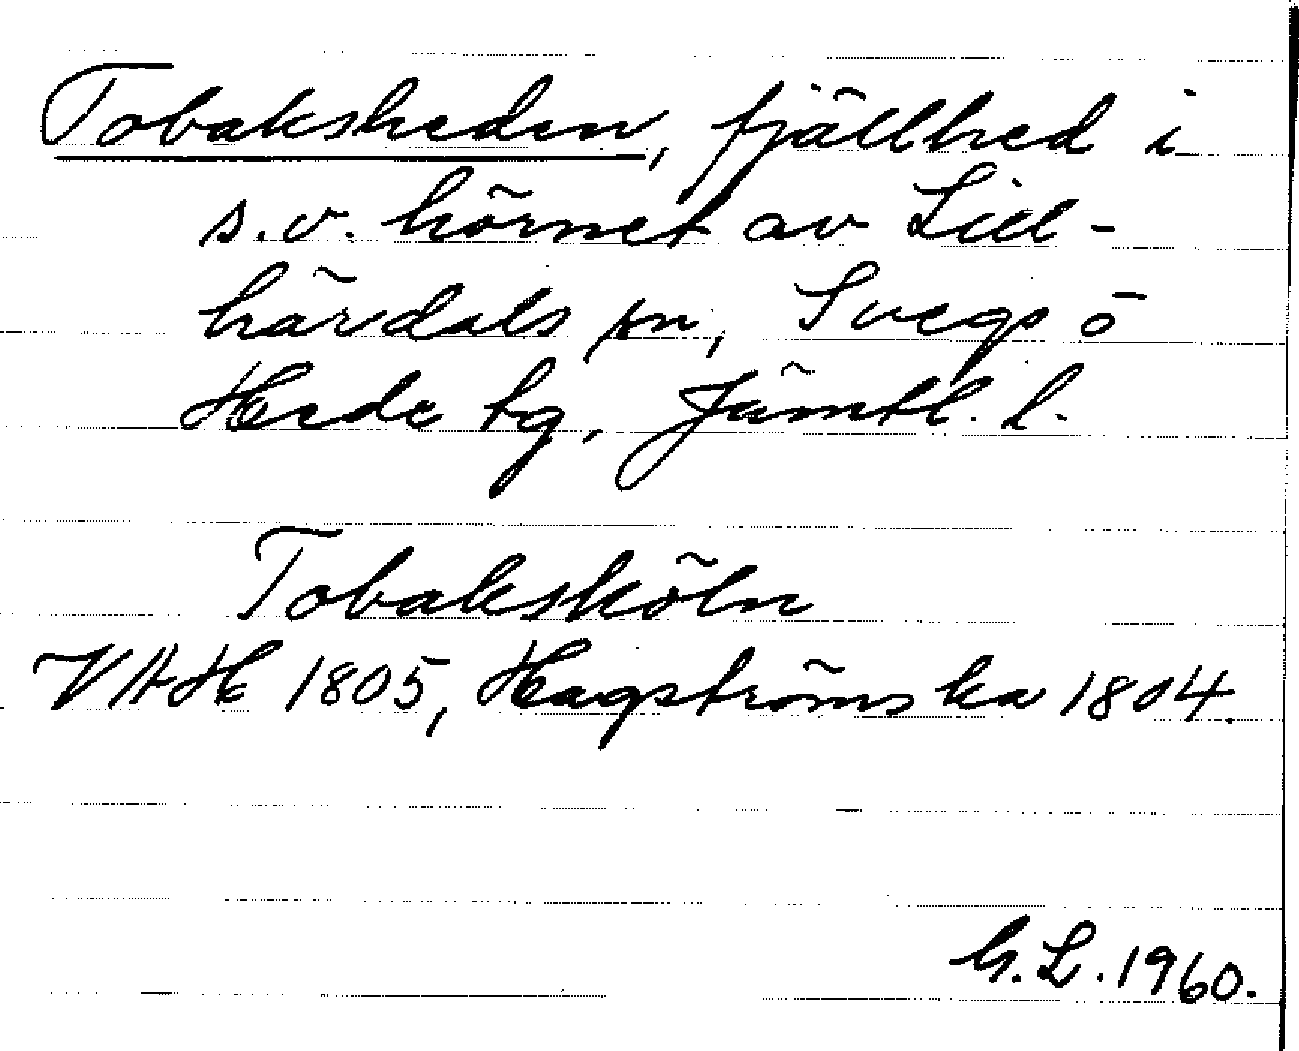 Tobaksheden, fjällhed i
s.v. hörnet av Lill-
härdals sn, Svegs o
Hede tg, Jämtl. l.
Tobaksköln
VAH 1805, Hagströmska 1804.
G.L. 1960.